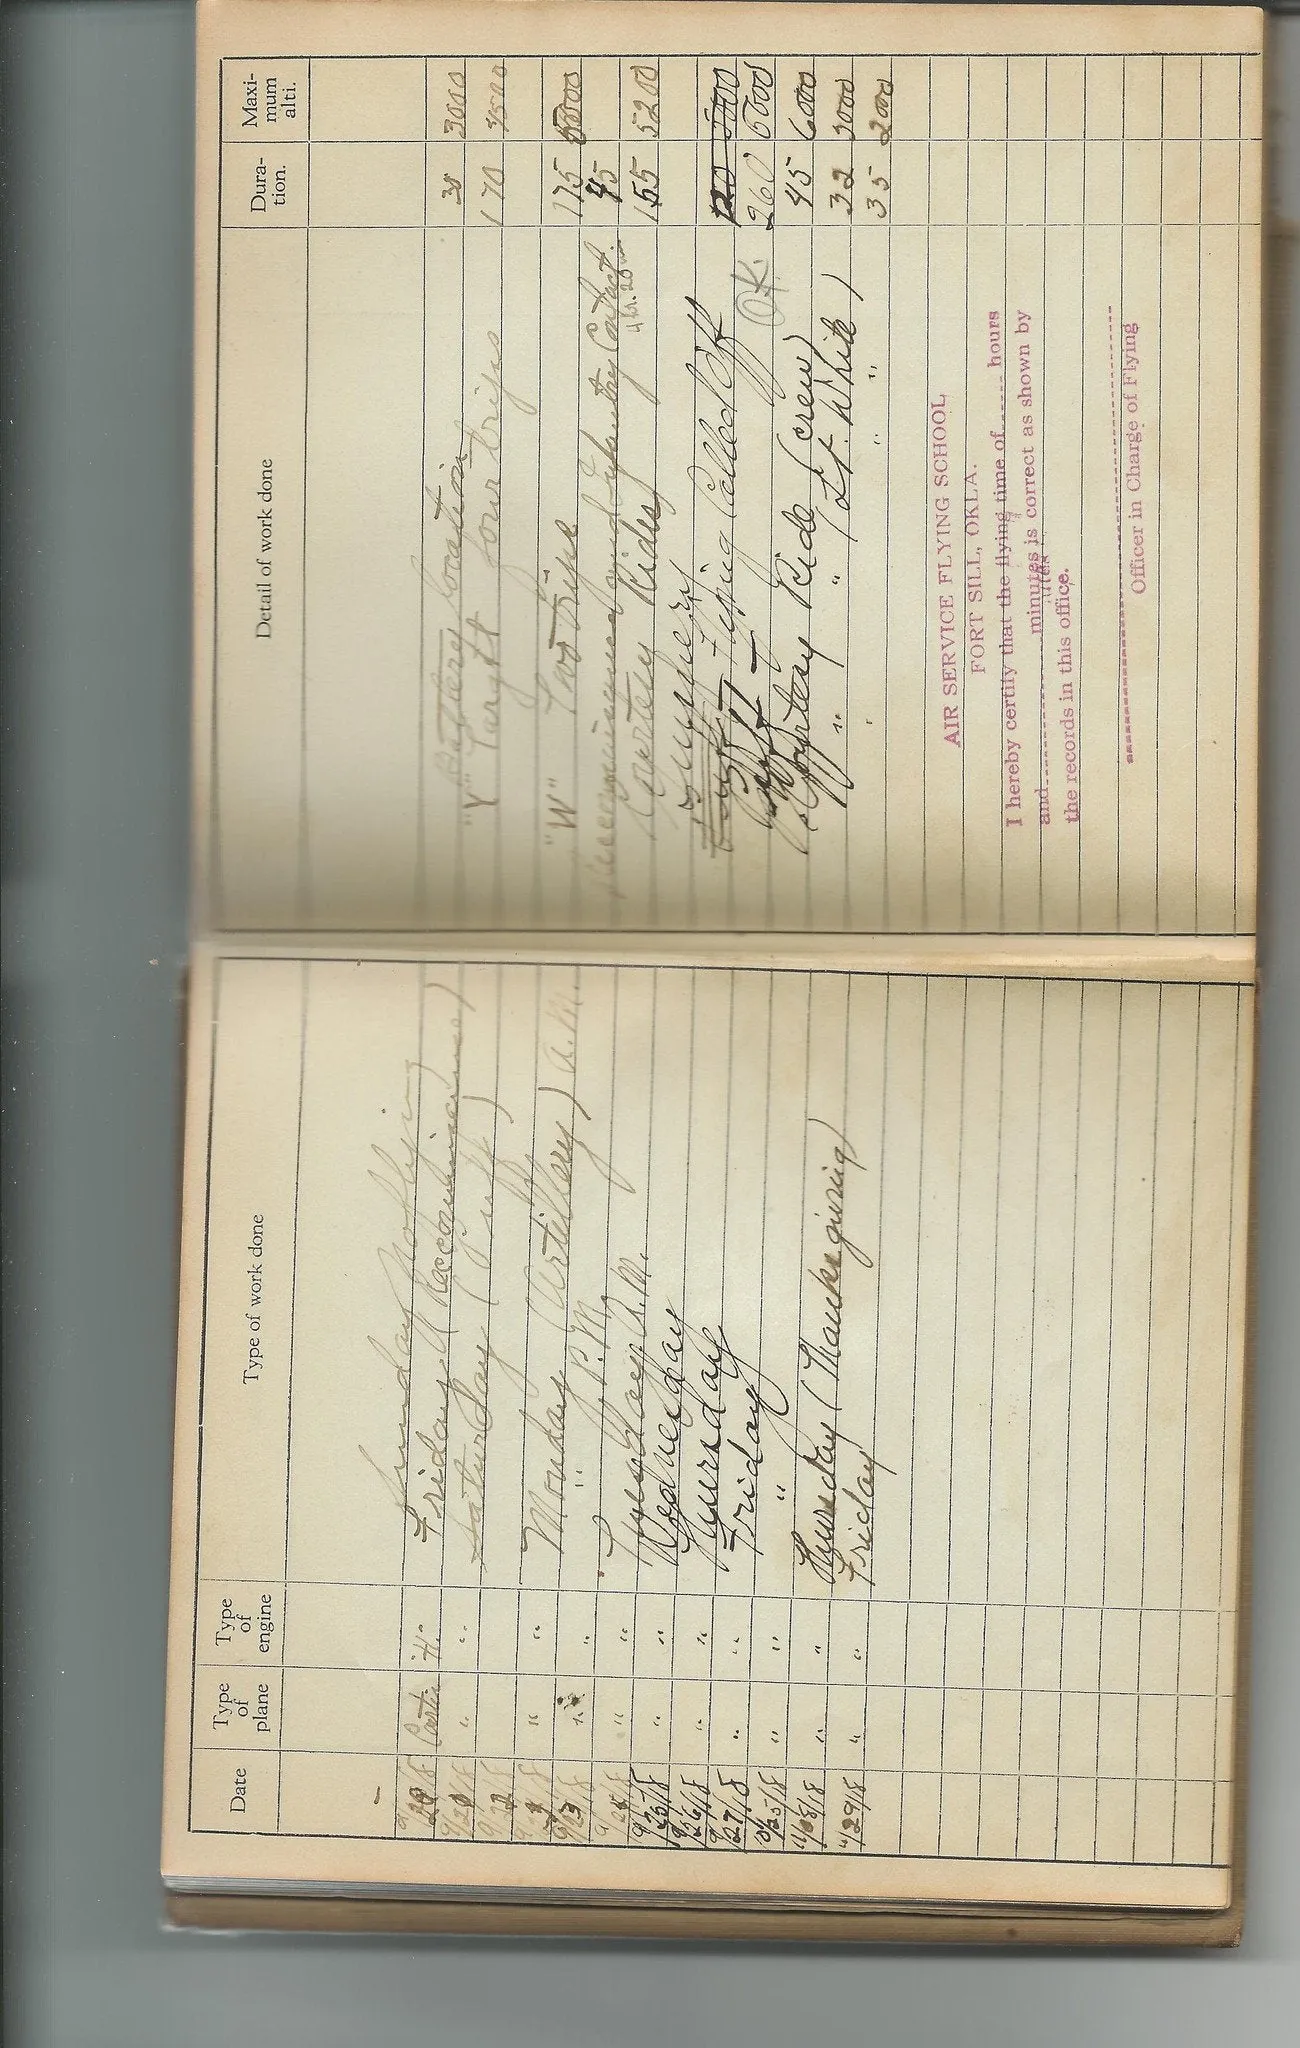 Date Type of plane Type of engine Type of work done
Sunday No flying
9/20/18 Curtis "H" Friday (Reconnaissance)
9/21/18 " " Saturday (Puff)
9/22/18
9/23/18 " " Monday (Artillery) A.M.
9/23/18 " " " P.M.
9/24/18 " " Tuesday A.M.
9/25/18 " " Wednesday
9/26/18 " " Thursday
9/27/18 " " Friday
10/25/18 " " "
11/28/18 " " Thursday (Thanksgiving)
11/29/18 " " Friday
Detail of work done Duration. Maximum alti.
Battery location 35 3000
"Y" Target four trips 170 3500
"W" Two Trips 175 5500
Reconnaissance and Infantry Contact. 45
4 hr. 20
Courtesy Rides 155 5200
Flying Called Off 120 5000
O.K. 260 5000
Courtesy Ride (crew) 45 6000
" " (Lt. White) 32 3000
" " 35 2000
AIR SERVICE FLYING SCHOOL,
FORT SILL, OKLA.
I hereby certify that the flying time of ...... hours
and .................... minutes is correct as shown by
the records in this office.
Officer in Charge of Flying